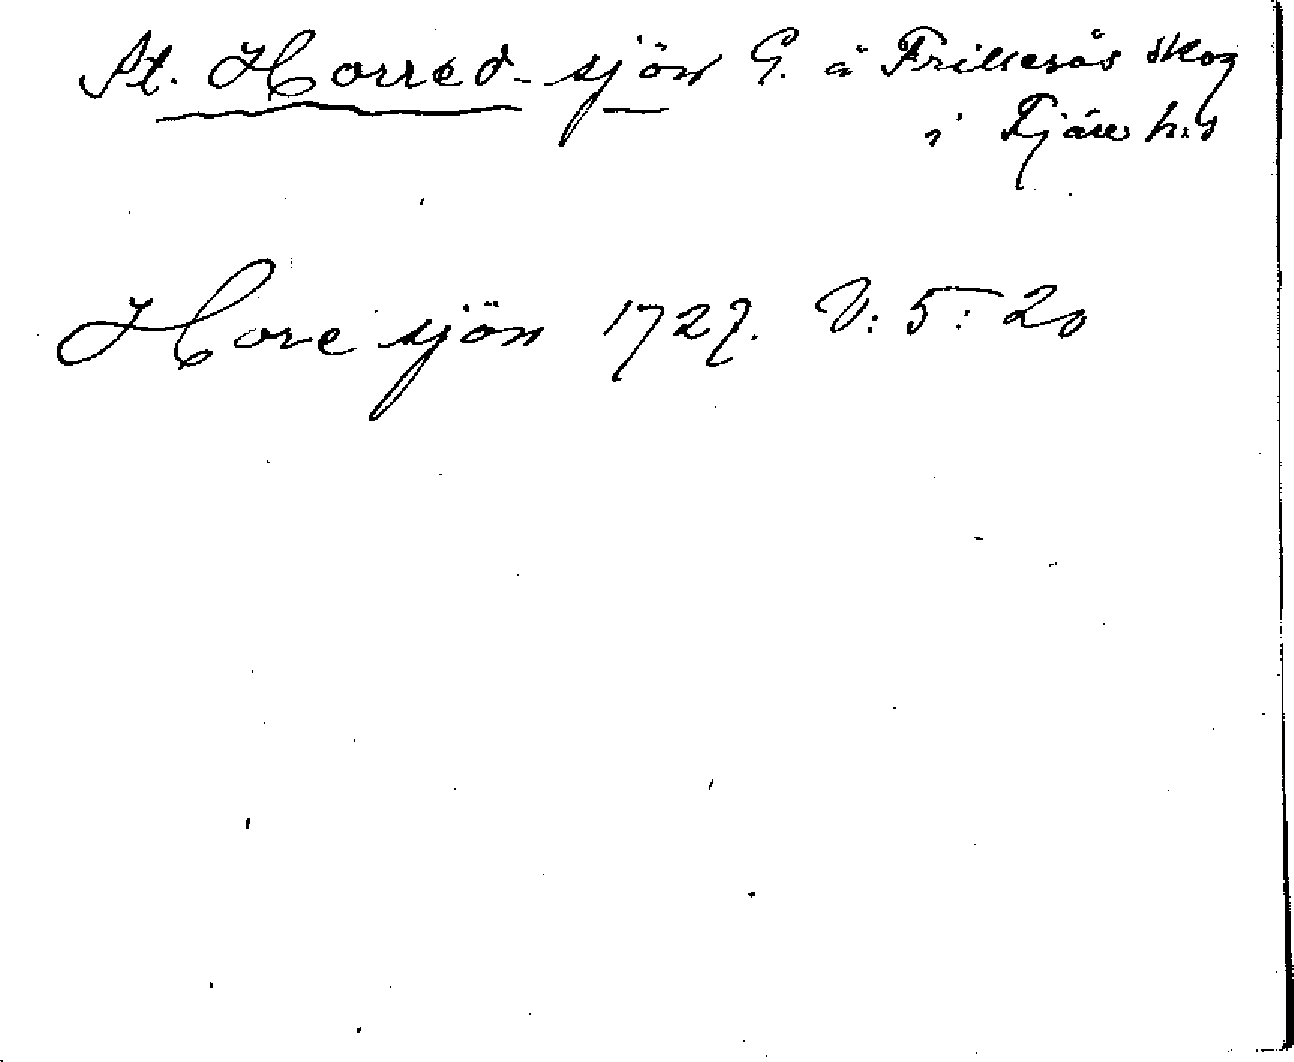 St. Horred-sjön G. å Frillesås skog
i Fjäre h:d
Hore sjön 1727. V: 5: 20